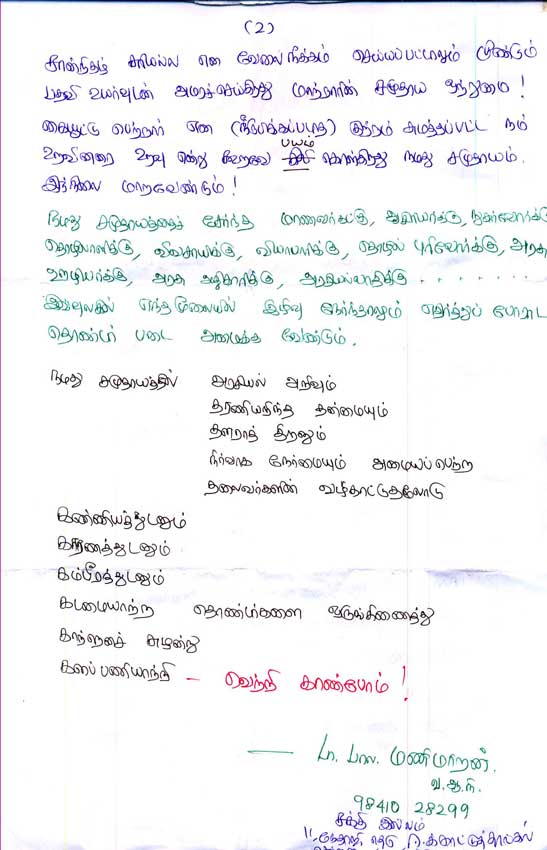 (2)
சான்றிதழ் சரியல்ல என வேலைநீக்கம் செய்யப்பட்டாலும் மீண்டும்
பதவி உயர்வுடன் அமரச்செய்கிறது மாற்றாரின் சமுதாய ஒற்றுமை !
கையூட்டு பெற்றார் என (நிரூபிக்கப்படாத) குற்றம் சுமத்தப்பட்ட நம்
உறவினரை உறவு என்று கூறவே பயம் கொள்கிறது நமது சமுதாயம்.
இந்நிலை மாறவேண்டும் !
நமது சமுதாயத்தைச் சேர்ந்த மாணவர்கட்கு, ஆசிரியர்க்கு, நுகர்வோர்க்கு
தொழிலாளிக்கு, விவசாயிக்கு, வியாபாரிக்கு, தொழில் புரிவோர்க்கு, அரசு
ஊழியர்க்கு, அரசு அதிகாரிக்கு, அரசியல்வாதிக்கு . . . . . . .
இவ்வுலகில் எந்த மூலையில் இழிவு நேர்ந்தாலும் எதிர்த்துப் போராட
தொண்டர் படை அமைக்க வேண்டும்.
நமது சமுதாயத்தில் அரசியல் அறிவும்
தரணியறிந்த தன்மையும்
தளராத் திறனும்
நிர்வாக நேர்மையும் அமையப்பெற்ற
தலைவர்களின் வழிகாட்டுதலோடு
கண்ணியத்துடனும்
காரணத்துடனும்
கம்பீரத்துடனும்
கடமையாற்ற தொண்டர்களை ஒருங்கிணைத்து
காற்றாய்ச் சுழன்று
களப்பணியாற்றி – வெற்றி காண்போம் !
பா. மணிமாறன்.
வ.ஆ.நி.
98410 28299
சக்தி இல்லம்
11,